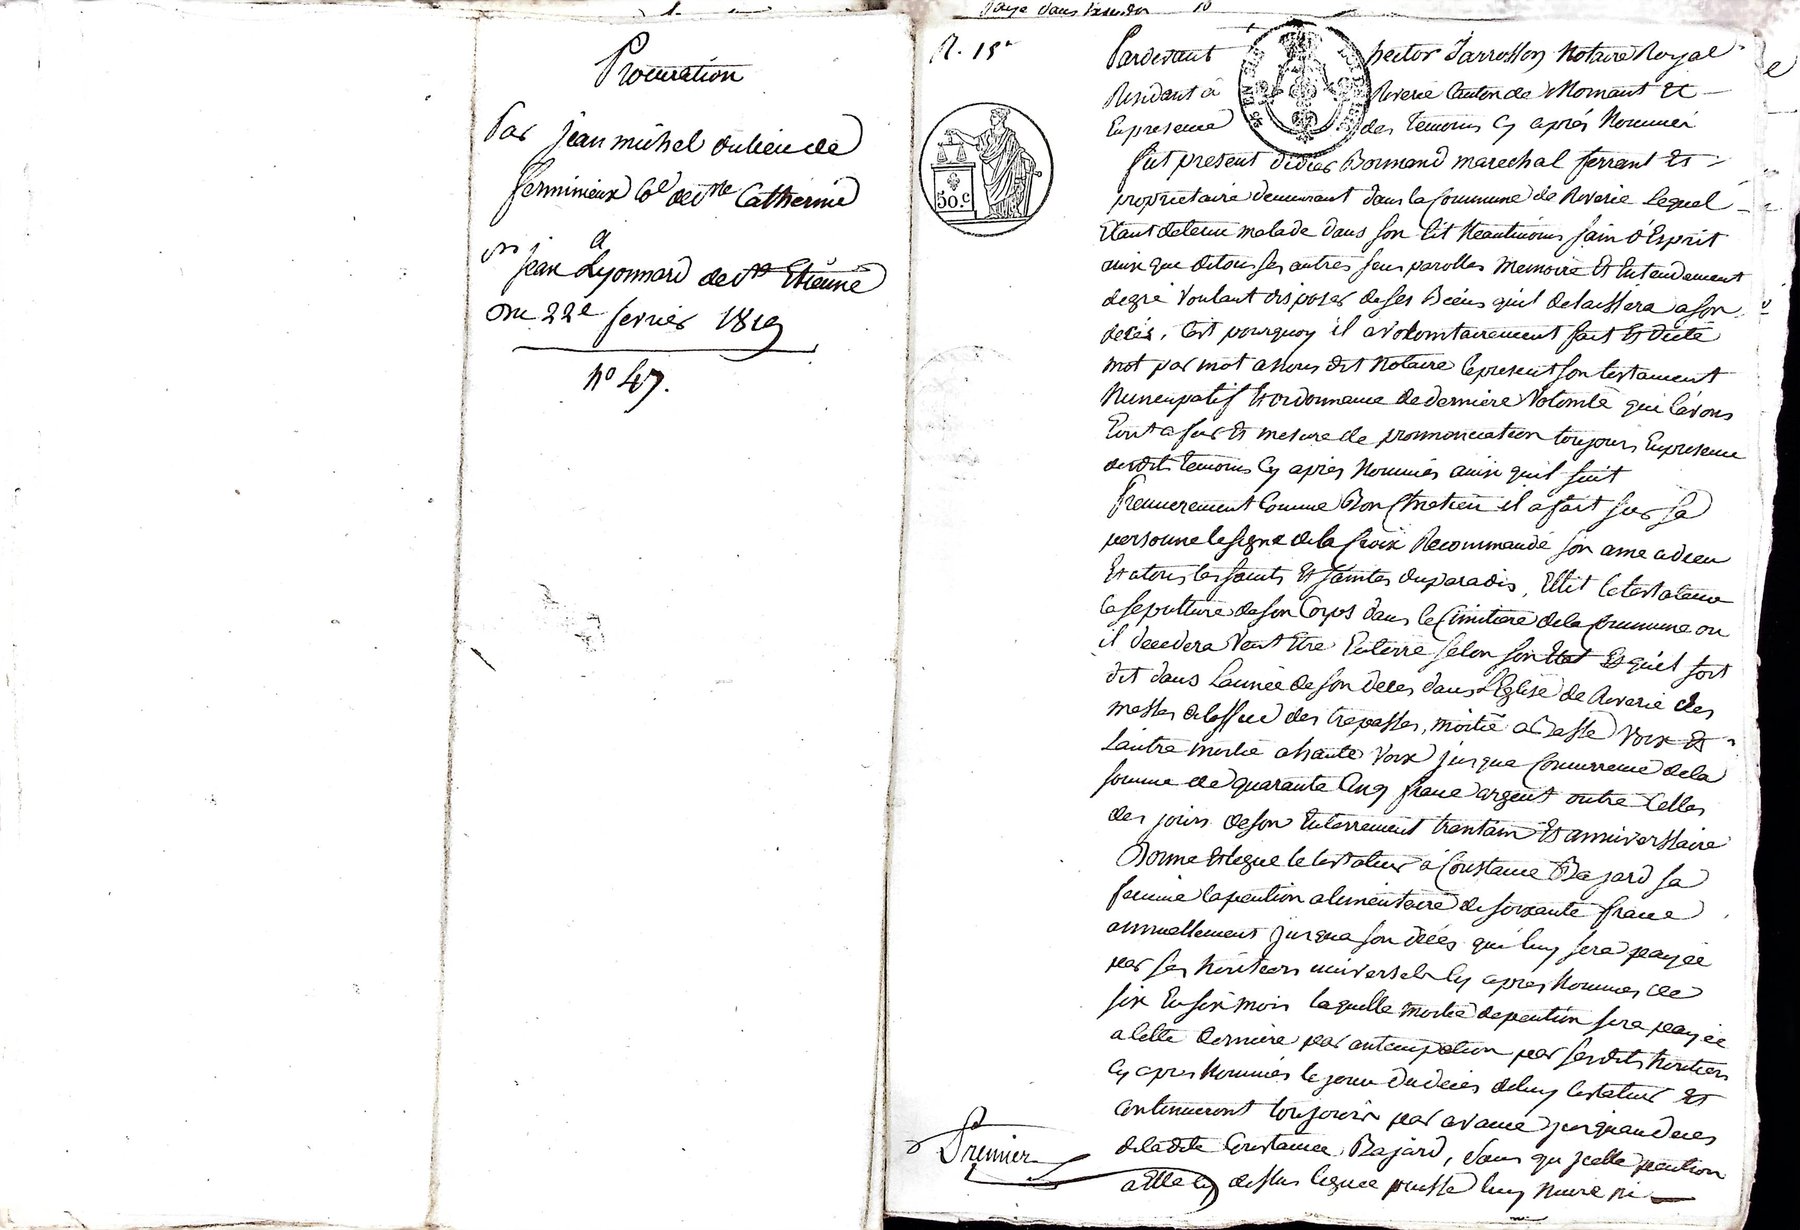 Procuration
Par jean michel dulieu de
ferminieux Co^e de S^te Catherine
a
S^r jean Lyonnard de S^t Etienne
du 22^e fevrier 1819
n° 47.
N. 15
50.c
Pardevant hector Jarrosson Notaire Royal
Residant à Riverie Canton de Mornant Et
En presence des temoins Cy aprés Nommés
fut present didier Bonnand marechal ferrant Et
proprietaire demeurant dans la Commune de Riverie Lequel
Etant detenu malade dans son lit Neantmoins sain d'Esprit
ainsi que de tous ses autres sens parolles Memoire Et Entendement
de gré Voulant disposer de ses Biens quil delaissera a son
decés, C'est pourquoy il a volontairement fait Et dicté
mot par mot a nous dit Notaire le present son testament
Nuncupatif Et ordonnance de derniere Volonté qui l'avons
Ecrit a fur Et mesure de prononciation toujours En presence
desdits temoins Cy apres Nommés ainsi quil suit
Premierement Comme Bon Chretien il a fait sur sa
personne le signe de la Croix Recommandé son ame a dieu
Et a tous les saints Et saintes du paradis, Ellit le testateur
la sepulture de son Corps dans le Cimitiere de la Commune ou
il decedera Veut Etre Enterré selon son Etat Et qu'il soit
dit dans L'année de son decés dans L'Eglise de Riverie des
messes de l'office des trepassés, moitié a Basse Voix Et
L'autre moitié a haute Voix jusqua Concurrence de la
somme de quarante Cinq franc argent outre Celles
des jours de son Enterrement trantain Et anniverssaire
Donne Et legue le testateur à Constance Bajard sa
femme la pention alimentaire de soixante franc
annuellement jusqua son decés qui luy sera payée
par ses heritiers universels Cy apres Nommés de
six En six mois laquelle moitié de pention sera payée
a Cette derniere par anticipation par sesdits heritiers
Cy apres Nommés le jour du decés de luy testateur Et
Continueront toujours par avance jusquau deces
de ladite Constance Bajard, sans qu'jcelle pention
a Elle Cy dessus leguée puisse luy Nuire ni
Premier